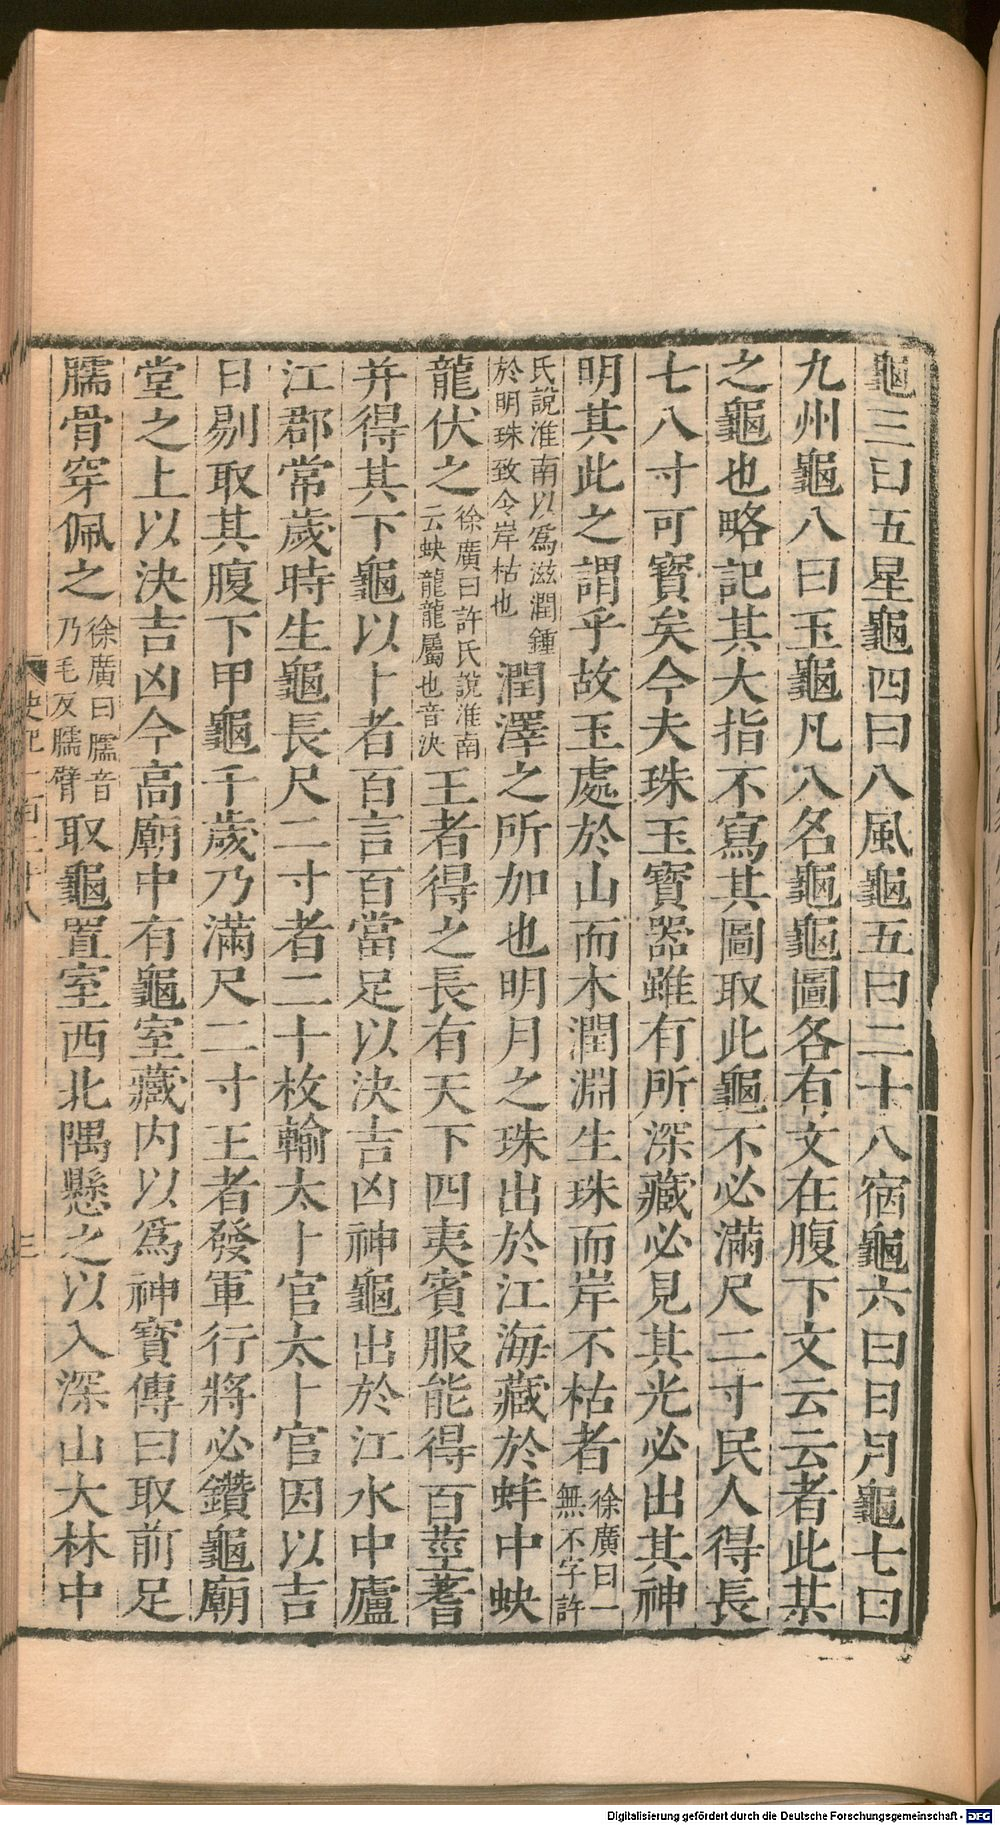 龜三曰五星龜四曰八風龜五曰二十八宿龜六曰日月龜七曰
九州龜八曰玉龜凡八名龜龜圖各有文在腹下文云云者此某
之龜也略記其大指不寫其圖取此龜不必滿尺二寸民人得長
七八寸可寶矣今夫珠玉寶器雖有所深藏必見其光必出其神
明其此之謂乎故玉處於山而木潤淵生珠而岸不枯者徐廣曰一無不字許
氏說淮南以爲滋潤鍾於明珠致令岸枯也潤澤之所加也明月之珠出於江海藏於蚌中蚗
龍伏之徐廣曰許氏說淮南云蚗龍龍屬也音決王者得之長有天下四夷賓服能得百莖蓍
并得其下龜以卜者百言百當足以決吉凶神龜出於江水中廬
江郡常歲時生龜長尺二寸者二十枚輸太卜官太卜官因以吉
日剔取其腹下甲龜千歲乃滿尺二寸王者發軍行將必鑽龜廟
堂之上以決吉凶今高廟中有龜室藏內以爲神寶傳曰取前足
臑骨穿佩之徐廣曰臑音乃毛反臑臂取龜置室西北隅懸之以入深山大林中
史記一百二十八
三
Digitalisierung gefördert durch die Deutsche Forschungsgemeinschaft - DFG